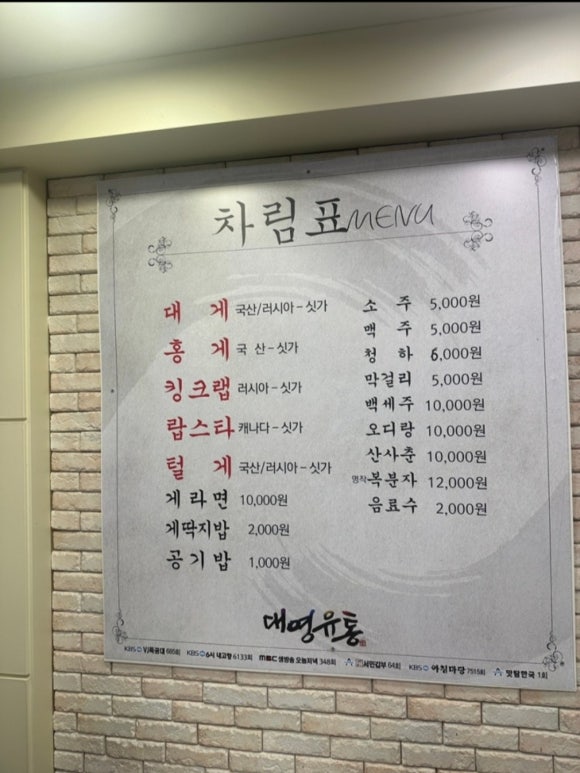 차림표 MENU
대 게 국산/러시아 - 싯가
홍 게 국 산 - 싯가
킹크랩 러시아 - 싯가
랍스타 캐나다 - 싯가
털 게 국산/러시아 - 싯가
게라면 10,000원
게딱지밥 2,000원
공기밥 1,000원
소 주 5,000원
맥 주 5,000원
청 하 6,000원
막걸리 5,000원
백세주 10,000원
오디랑 10,000원
산사춘 10,000원
명작 복분자 12,000원
음료수 2,000원
대명유통
KBS VJ특공대 686회 KBS 6시 내고향 6133회 MBC 생방송 오늘저녁 348회 서민갑부 64회 KBS 아침마당 7515회 맛탐한국 1회